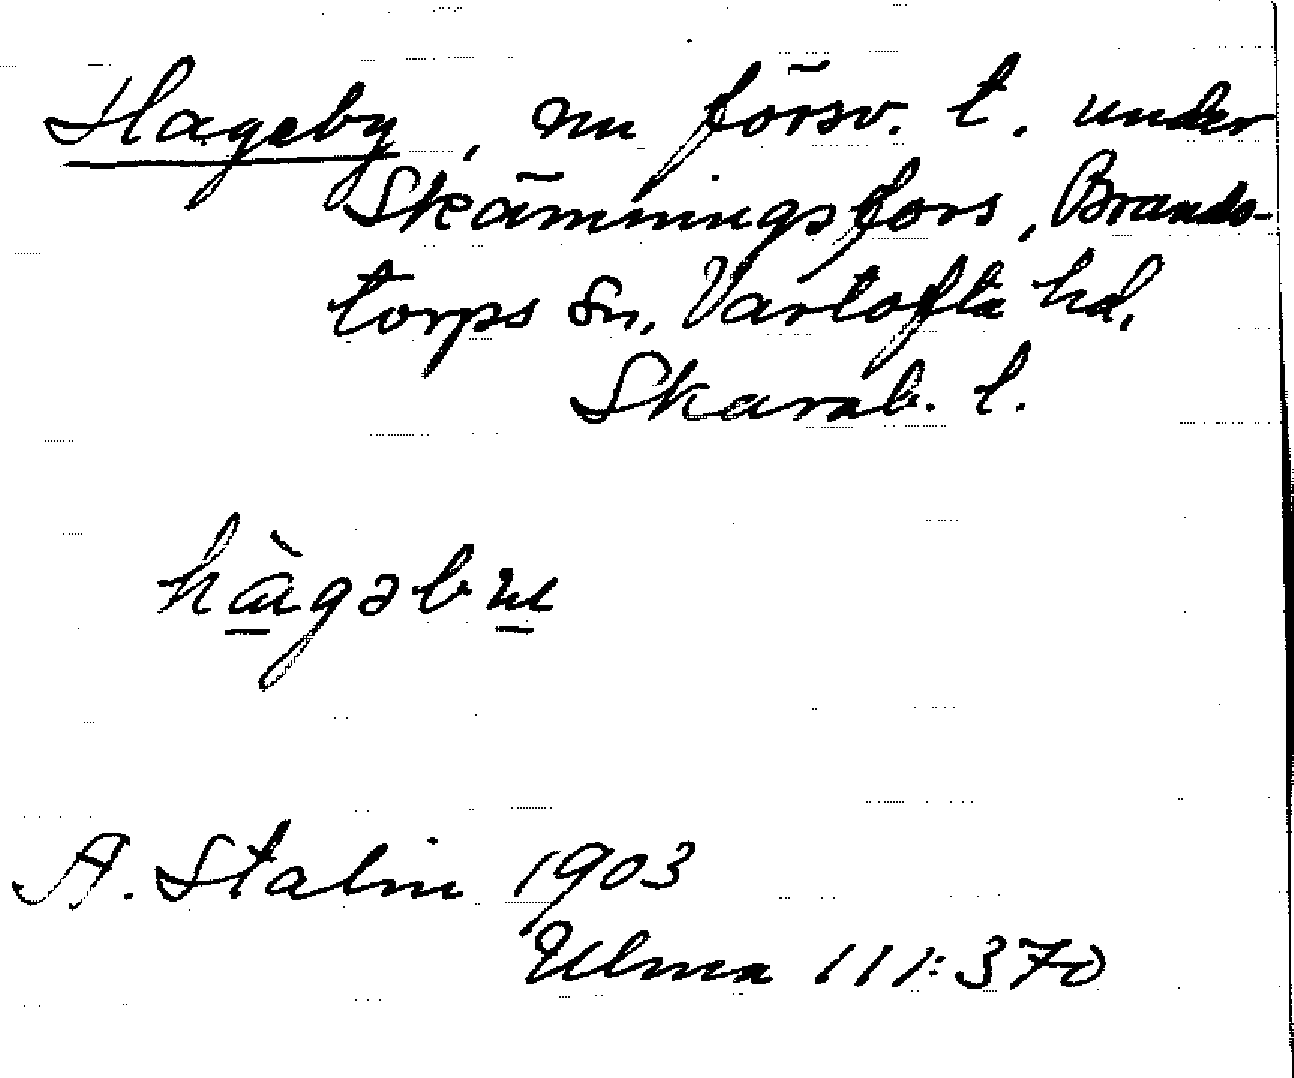 Hageby, nu försv. t. under
Skämningsfors, Brands-
torps sn, Vartofta hd,
Skarab. l.
hàgəbu
A. Stalin 1903
Ulma 111:370